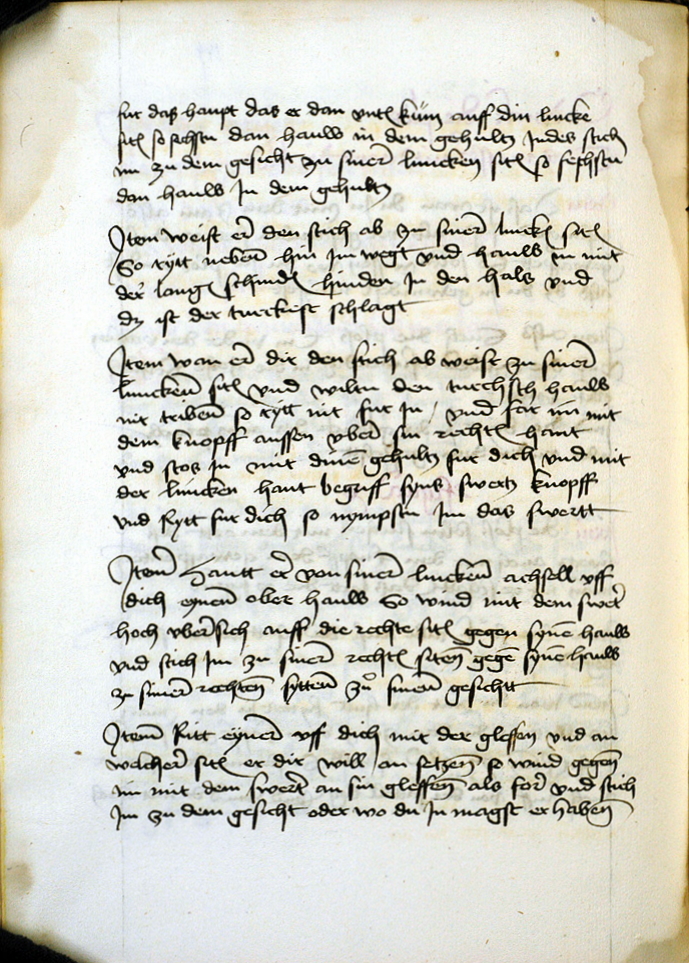 fur das haupt das er dan vnt kum auff din lincke
sit so sechstu dan hauws in dem gehultz Indes stich
im zu dem gesicht zu siner lincken sit so sechstu
dan hauws In dem gehultz
Item weist er den stich ab zu siner linck sit
So rytt neben hin Im wegt vnd hauws in mit
der lang schnid hinden In den hals vnd
dz ist der turckest schlagt
Item wan er dir den stich ab weist zu siner
lincken sit vnd wiltu den turchsch hauws
nit triben so rytt nit fur In / vnd far im mit
dem knopff aussen vber sin recht hant
vnd stos In mit dinē gehultz fur dich vnd mit
der lincken hant begriff syns swertz knopff
vnd Rytt fur dich so nympstu Im das swertt
Item Hautt er von siner lincken achsell vff
dich eynen ober hauws So wind mit dem swert
hoch vbersich auff die rechte sit gegen synē hauws
vnd stich Im zu siner recht siten gegē synē hauws
zu siner rechten sytten zů sinem gesichtt
Item Ritt eyner vff dich mit der gleffen vnd an
welcher sit er dir will an setzen so wind gegen
im mit dem swert an sin gleffen als for vnd stich
Im zu dem gesicht oder wo du In magst er haben